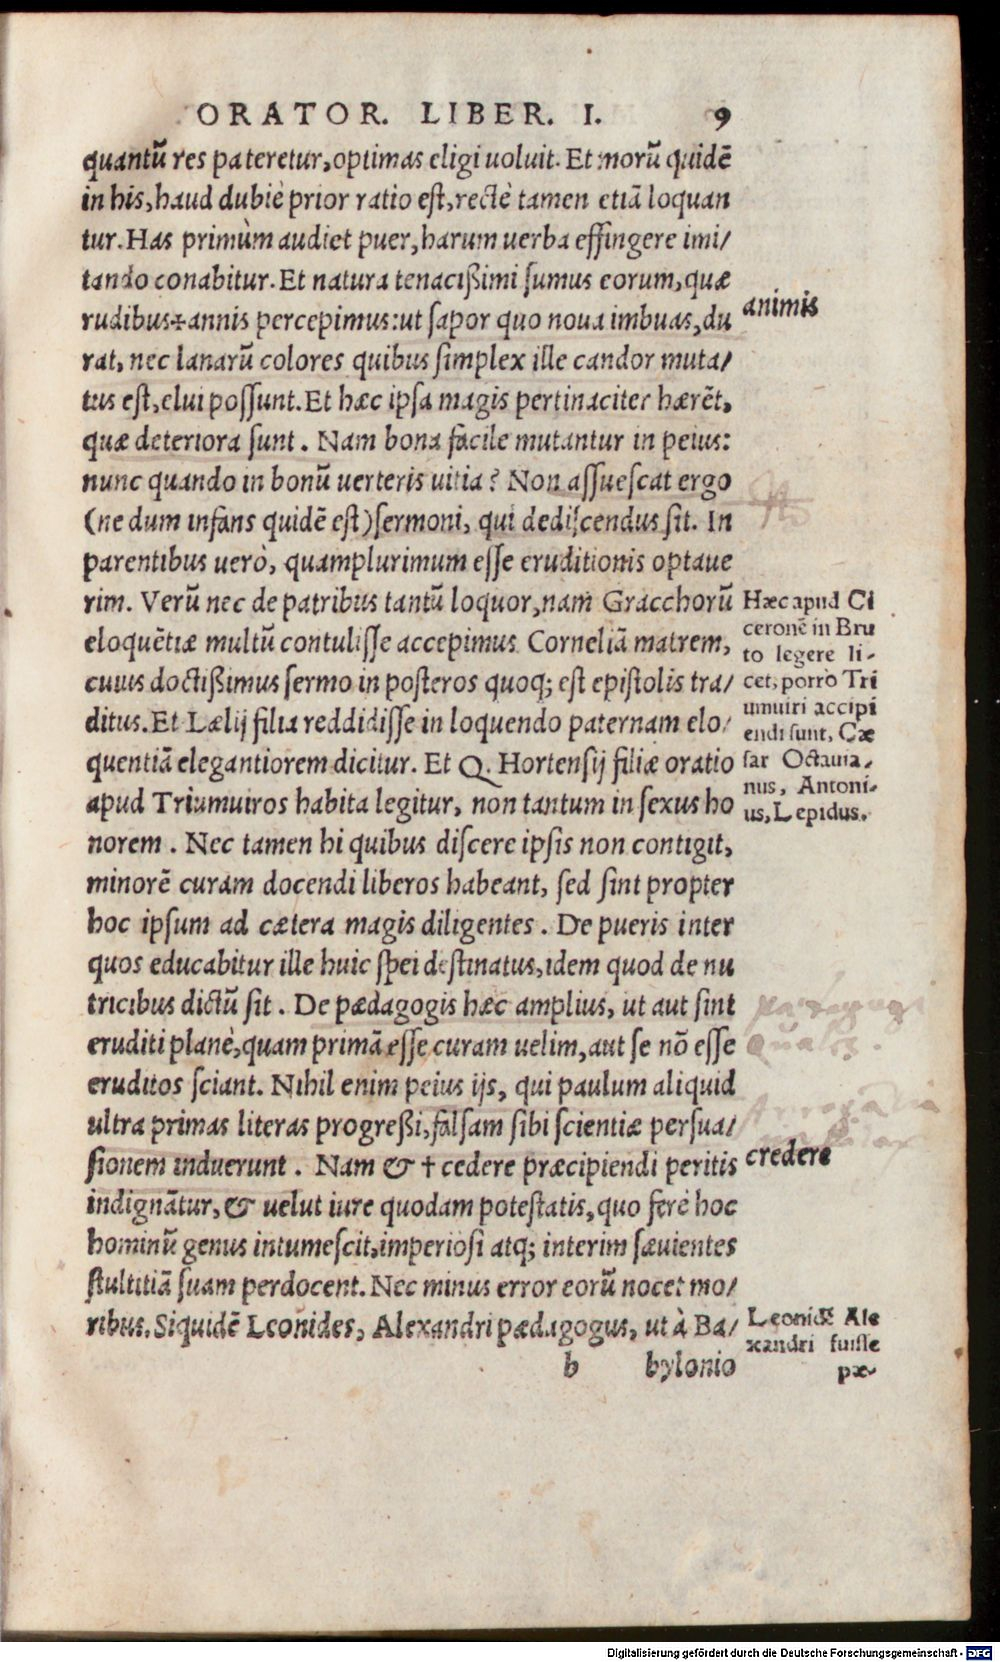 ORATOR. LIBER. I. 9
quantũ res pateretur, optimas eligi uoluit. Et morũ quidẽ
in his, haud dubiè prior ratio est, rectè tamen etiã loquan
tur. Has primùm audiet puer, harum uerba effingere imi/
tando conabitur. Et natura tenacißimi sumus eorum, quæ
rudibus✢annis percepimus: ut sapor quo noua imbuas, du
rat, nec lanarũ colores quibus simplex ille candor muta/
tus est, elui possunt. Et hæc ipsa magis pertinaciter hærẽt,
quæ deteriora sunt. Nam bona facile mutantur in peius:
nunc quando in bonũ uerteris uitia? Non assuescat ergo
(ne dum infans quidẽ est) sermoni, qui dediscendus sit. In
parentibus uerò, quamplurimum esse eruditionis optaue
rim. Verũ nec de patribus tantũ loquor, nam Gracchorũ
eloquẽtiæ multũ contulisse accepimus Corneliã matrem,
cuius doctißimus sermo in posteros quoq; est epistolis tra/
ditus. Et Lælij filia reddidisse in loquendo paternam elo/
quentiã elegantiorem dicitur. Et Q. Hortensij filiæ oratio
apud Triumuiros habita legitur, non tantum in sexus ho
norem. Nec tamen hi quibus discere ipsis non contigit,
minorẽ curam docendi liberos habeant, sed sint propter
hoc ipsum ad cætera magis diligentes. De pueris inter
quos educabitur ille huic spei destinatus, idem quod de nu
tricibus dictũ sit. De pædagogis hæc amplius, ut aut sint
eruditi planè, quam primã esse curam uelim, aut se nõ esse
eruditos sciant. Nihil enim peius ijs, qui paulum aliquid
ultra primas literas progreßi, falsam sibi scientiæ persua/
sionem induerunt. Nam & † cedere præcipiendi peritis
indignãtur, & uelut iure quodam potestatis, quo ferè hoc
hominũ genus intumescit, imperiosi atq; interim sæuientes
stultitiã suam perdocent. Nec minus error eorũ nocet mo/
ribus. Siquidẽ Leonides, Alexandri pædagogus, ut à Ba/
b bylonio
animis
Hæc apud Ci
ceronẽ in Bru
to legere li-
cet, porro Tri
umuiri accipi
endi sunt, Cæ
sar Octauia-
nus, Antoni-
us, Lepidus.
pædagogi
quales.
credere
Leonidẽ Ale
xandri fuisse
pæ-
Digitalisierung gefördert durch die Deutsche Forschungsgemeinschaft - DFG